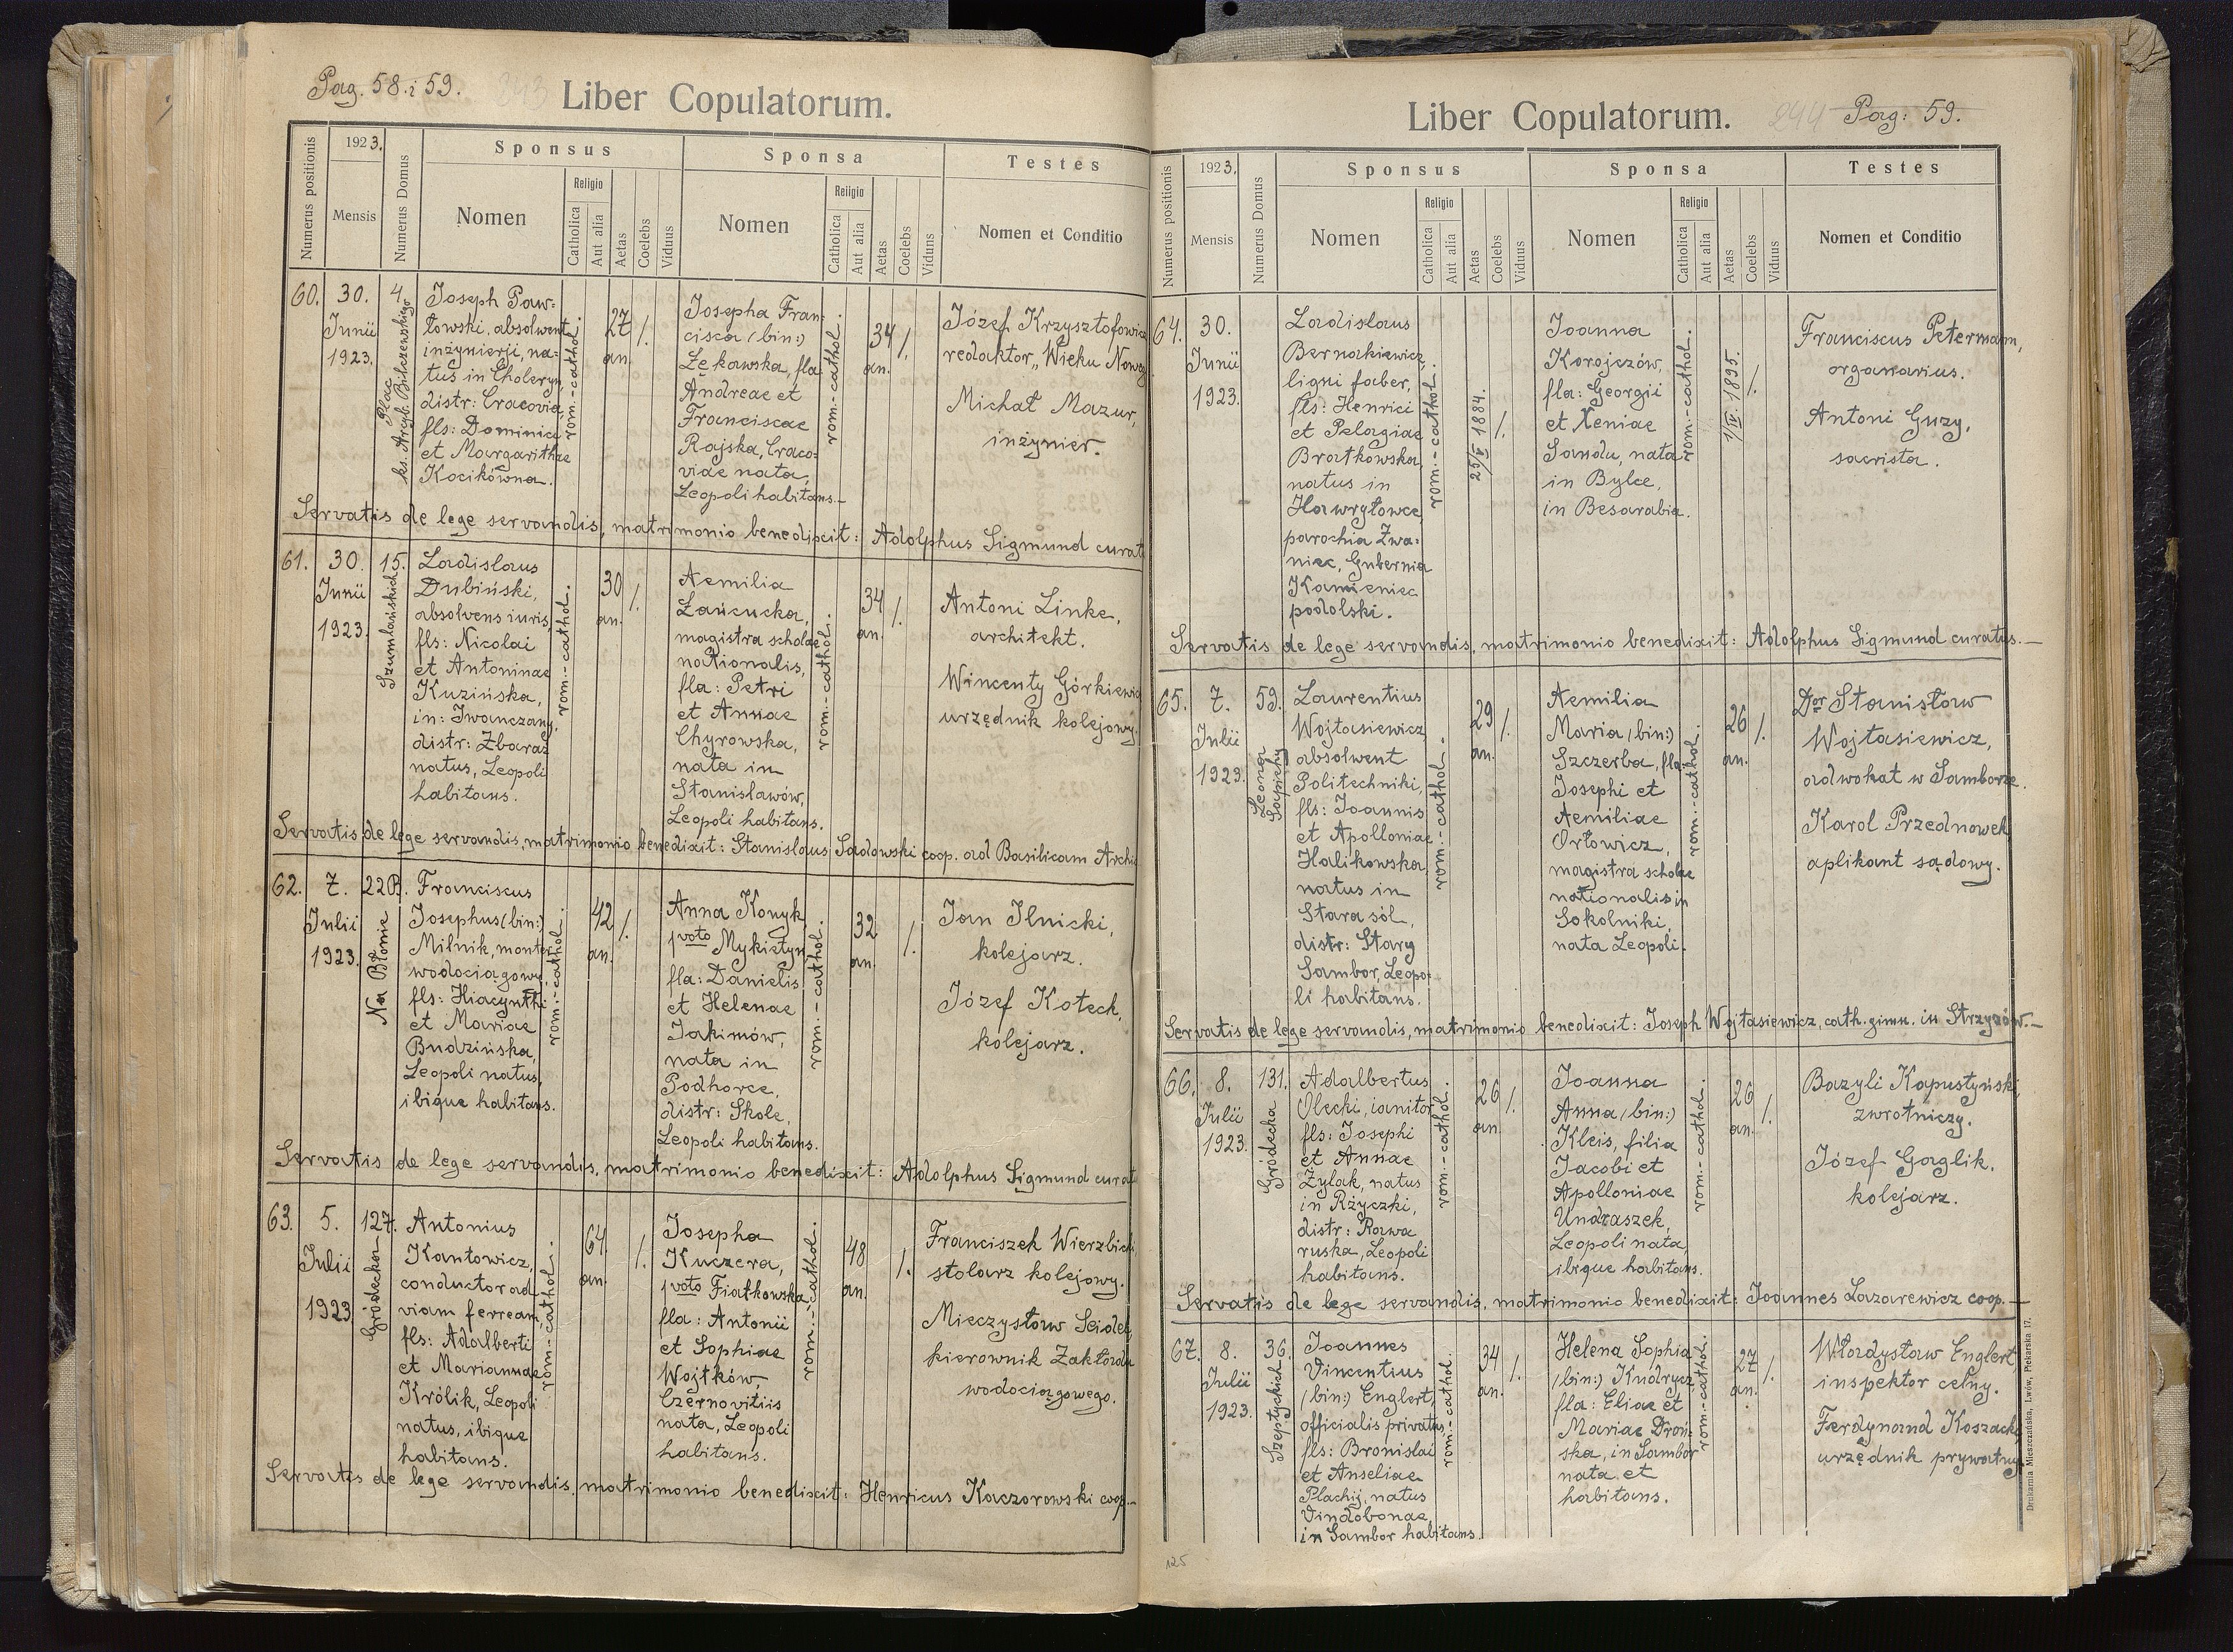 Pag. 58. i 59.
243
Liber Copulatorum.
Numerus positionis
1923.
Mensis
Numerus Domus
Sponsus
Nomen
Religio
Catholica
Aut alia
Aetas
Coelebs
Viduus
Sponsa
Nomen
Religio
Catholica
Aut alia
Aetas
Coelebs
Viduus
Testes
Nomen et Conditio
60.
30.
Junii
1923.
4.
Plac
ks. Arcyb. Bilczewskiego
Joseph Paw-
łowski, absolwent
inżynierji, na-
tus in Choleryn,
distr: Cracovia,
fls: Dominici
et Margarithae
Kocikówna.
rom.-cathol.
27
an.
/.
Josepha Fran-
cisca (bin:)
Łękawska, fla:
Andreae et
Franciscae
Rajska, Craco-
viae nata,
Leopoli habitans.-
rom.-cathol.
34
an.
/.
Józef Krzysztofowicz
redaktor „Wieku Nowego
Michał Mazur,
inżynier.
Servatis de lege servandis, matrimonio benedixit: Adolphus Sigmund curat
61.
30.
Junii
1923.
15.
Szumlańskich
Ladislaus
Dubiński,
absolvens iuris,
fls: Nicolai
et Antoninae
Kuzińska,
in: Iwanczany,
distr: Zbaraż
natus, Leopoli
habitans.
rom.-cathol.
30
an.
/.
Aemilia
Łańcucka,
magistra scholae
nationalis,
fla: Petri
et Annae
Chyrowska,
nata in
Stanisławów,
Leopoli habitans.
rom.-cathol.
34
an.
/.
Antoni Linke,
architekt.
Wincenty Górkiewicz
urzędnik kolejowy.
Servatis de lege servandis, matrimonio benedixit: Stanislaus Sadowski coop. ad Basilicam Archi
62.
7.
Julii
1923.
22B.
Na Błonie
Franciscus
Josephus (bin:)
Milnik, monter
wodociągowy
fls: Hiacynthi
et Mariae
Budzińska,
Leopoli natus,
ibique habitans.
rom.-cathol.
42
an.
/.
Anna Konyk
1 voto Mykietyn
fla: Danielis
et Helenae
Jakimów,
nata in
Podhorce,
distr: Skole,
Leopoli habitans.
rom.-cathol.
32
an.
/.
Jan Ilnicki,
kolejarz.
Józef Koteck,
kolejarz.
Servatis de lege servandis, matrimonio benedixit: Adolphus Sigmund curat
63.
5.
Julii
1923
127.
Gródecka
Antonius
Kantowicz,
conductor ad
viam ferream,
fls: Adalberti
et Mariannae
Królik, Leopoli
natus, ibique
habitans.
rom.-cathol.
64
an.
/.
Josepha
Kuczera,
1 voto Fiatkowska
fla: Antonii
et Sophiae
Wojtków,
Czernovitiis
nata, Leopoli
habitans.
rom.-cathol.
48
an.
/.
Franciszek Wierzbicki,
stolarz kolejowy.
Mieczysław Seidel,
kierownik Zakładu
wodociągowego.
Servatis de lege servandis, matrimonio benedixit: Henricus Kaczorowski coop.-
Liber Copulatorum.
244
Pag: 59.
Numerus positionis
1923.
Mensis
Numerus Domus
Sponsus
Nomen
Religio
Catholica
Aut alia
Aetas
Coelebs
Viduus
Sponsa
Nomen
Religio
Catholica
Aut alia
Aetas
Coelebs
Viduus
Testes
Nomen et Conditio
64.
30.
Junii
1923.
Ladislaus
Bernakiewicz,
ligni faber,
fls: Henrici
et Pelagiae
Bratkowska,
natus in
Hawryłowce,
parochia Żwa-
niec, Gubernia
Kamieniec
podolski.
rom.-cathol.
25/V 1884.
/.
Joanna
Korojczów,
fla: Georgii
et Xeniae
Sandu, nata
in Bylce,
in Besarabia.
rom.-cathol.
1/IV. 1895.
/.
Franciscus Petermann,
organarius.
Antoni Guzy,
sacrista.
Servatis de lege servandis, matrimonio benedixit: Adolphus Sigmund curatus.-
65.
7.
Julii
1923.
59.
Leona
Sapiehy
Laurentius
Wojtasiewicz
absolwent
Politechniki,
fls: Joannis
et Apolloniae
Halikowska,
natus in
Stara sól,
distr: Stary
Sambor, Leopo-
li habitans.
rom.-cathol.
29
an.
/.
Aemilia
Maria (bin:)
Szczerba, fla:
Josephi et
Aemiliae
Orłowicz,
magistra scholae
nationalis in
Sokolniki,
nata Leopoli.
rom.-cathol.
26
an.
/.
Dor Stanisław
Wojtasiewicz,
adwokat w Samborze.
Karol Przednowek
aplikant sądowy.
Servatis de lege servandis, matrimonio benedixit: Joseph Wojtasiewicz, cath. gimn. in Strzyżów.-
66.
8.
Julii
1923.
131.
Gródecka
Adalbertus
Olecki, ianitor
fls: Josephi
et Annae
Żylak, natus
in Rżyczki,
distr: Rawa
ruska, Leopoli
habitans.
rom.-cathol.
26
an.
/.
Joanna
Anna (bin:)
Kleis, filia
Jacobi et
Apolloniae
Undraszek,
Leopoli nata,
ibique habitans.
rom.-cathol.
26
an.
/.
Bazyli Kapustyński,
zwrotniczy.
Józef Gaglik,
kolejarz.
Servatis de lege servandis, matrimonio benedixit: Joannes Lazarewicz coop.-
67.
8.
Julii
1923.
36.
Szeptyckich
Joannes
Vincentius
(bin:) Englert,
officialis privatus,
fls: Bronislai
et Anseliae
Plachij, natus
Vindobonae,
in Sambor habitans.
rom.-cathol.
34
an.
/.
Helena Sophia
(bin:) Kudrycz,
fla: Eliae et
Mariae Droń-
ska, in Sambor
nata et
habitans.
rom.-cathol.
27
an.
/.
Władysław Englert,
inspektor celny.
Ferdynand Koszacky
urzędnik prywatny
Drukarnia Mieszczańska, Lwów, Piekarska 17.
125